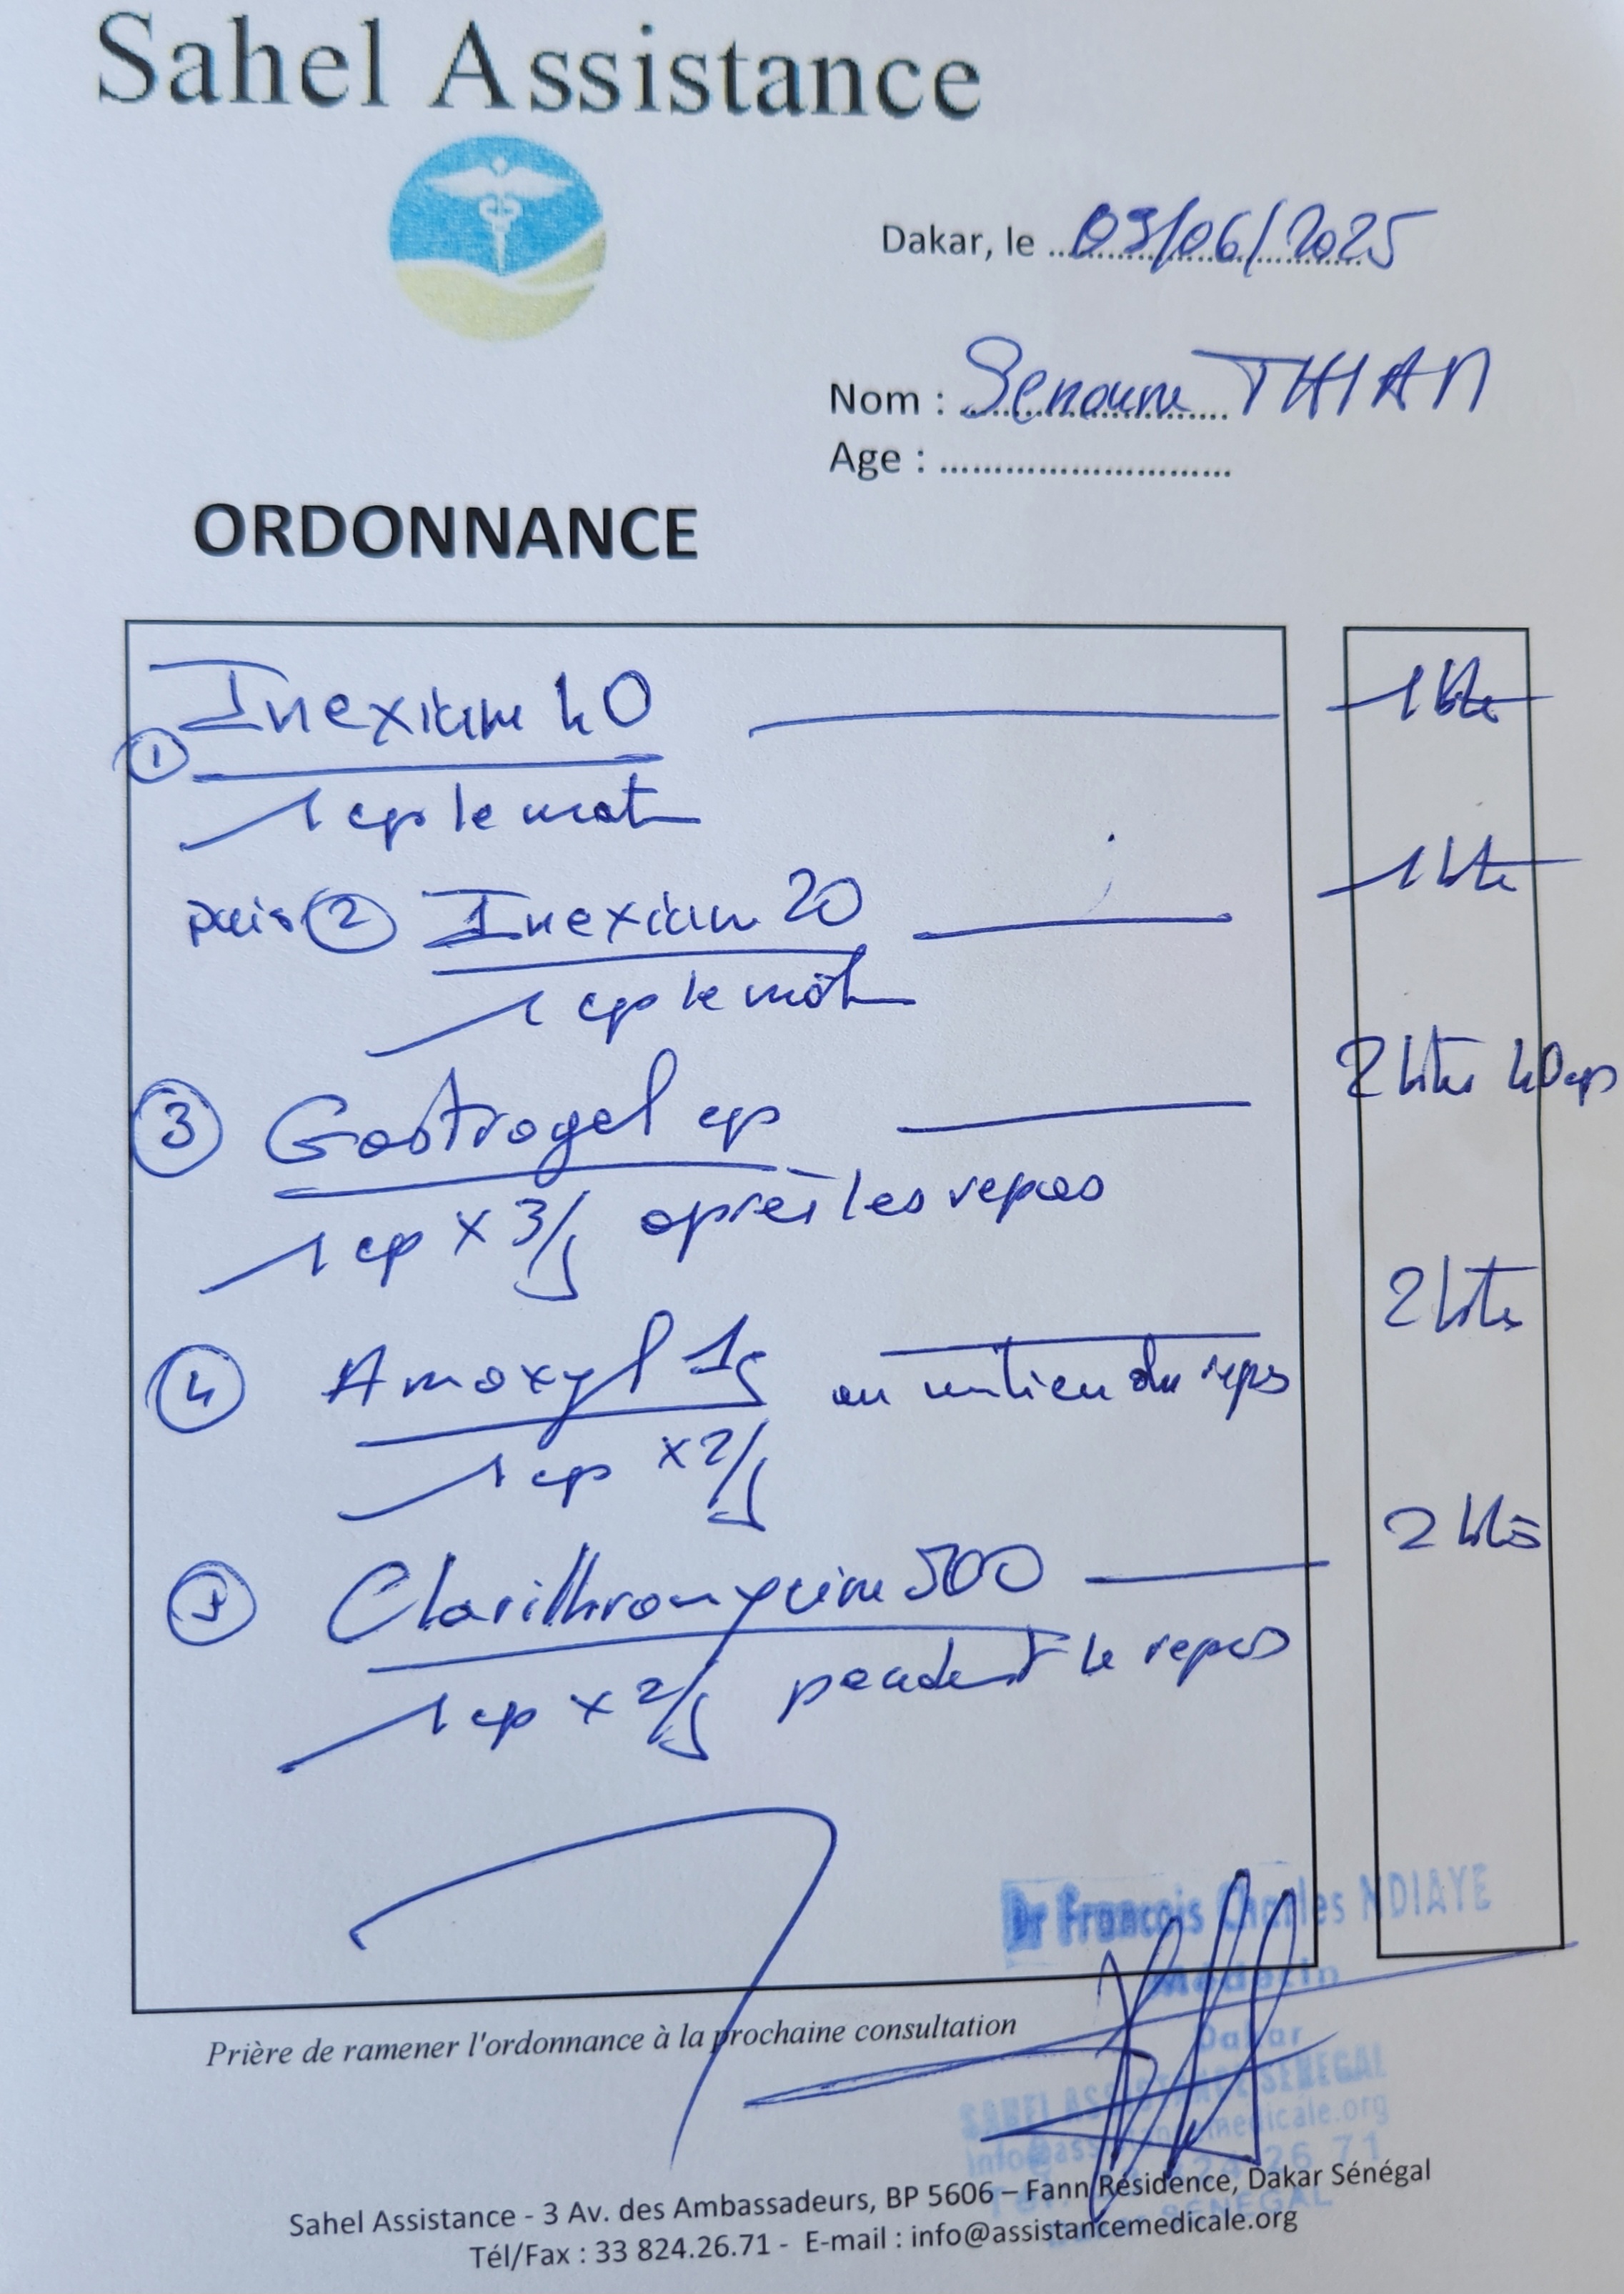 Sahel Assistance
Dakar, le 03/06/2025
Nom : THIAM
Age :
ORDONNANCE
Inexium 40 1 bte
① 1 cp le matin
puis ② Inexium 20 1 bte
1 cp le matin
③ Gastrogel cp 2 btes 40 cp
1 cp x 3/j après les repas
④ Amoxyl 1g 2 btes
au milieu du repas
1 cp x 2/j
⑤ Clarithromycine 500 2 btes
1 cp x 2/j pendant le repas
Dr François Charles NDIAYE
Médecin
Dakar
SAHEL ASSISTANCE SENEGAL
Prière de ramener l'ordonnance à la prochaine consultation
Sahel Assistance - 3 Av. des Ambassadeurs, BP 5606 – Fann Résidence, Dakar Sénégal
Tél/Fax : 33 824.26.71 - E-mail : info@assistancemedicale.org